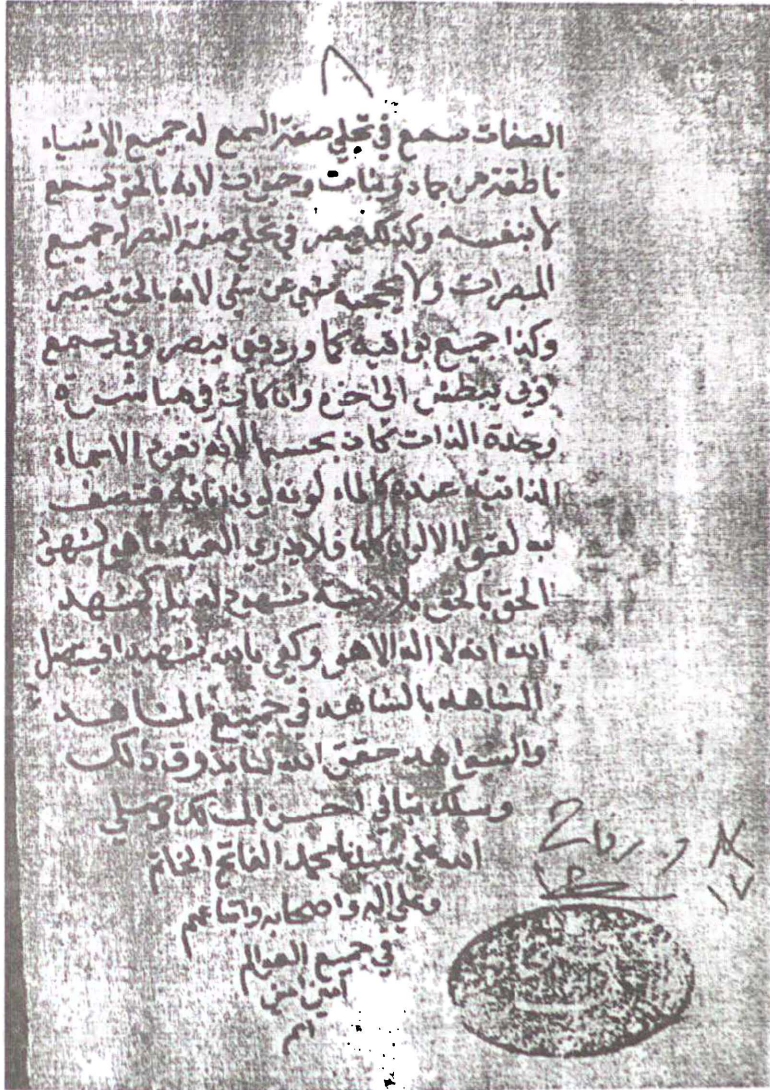 ٨
الصفات يسمع في تجلي صفة السمع له جميع الاشياء
ناطقة من جماد ونبات وحيوان لانه بالحق يسمع
لا بنفسه وكذلك يبصر في تجلي صفة البصر له جميع
المبصرات ولا يحجبه شي عن شي لانه بالحق يبصر
وكذا جميع بواقيه كما ورد فبي يبصر وبي يسمع
وبي يبطش الى اخره وان كان في مباشرة
وحدة الذات كان بحسبها لانه تقوم الاسماء
الذاتية عنده كالماء لونه لون انائه فيتصف
به لقبوله الالوان كلها فلا يدري العبد ما هو لشهود
الحق بالحق شهوده له بل كشهد
الله انه لا اله الا هو وكفى بالله شهيدا فيتصل
المشاهد بالشاهد في جميع المشاهد
والشواهد حقق الله لنا بذوق ذلك
وسلك بنا في احسن المسالك وصلى
الله على سيدنا محمد الفاتح الخاتم
وعلى اله واصحابه واتباعهم
في جميع العوالم
امين امين
ام
١٧